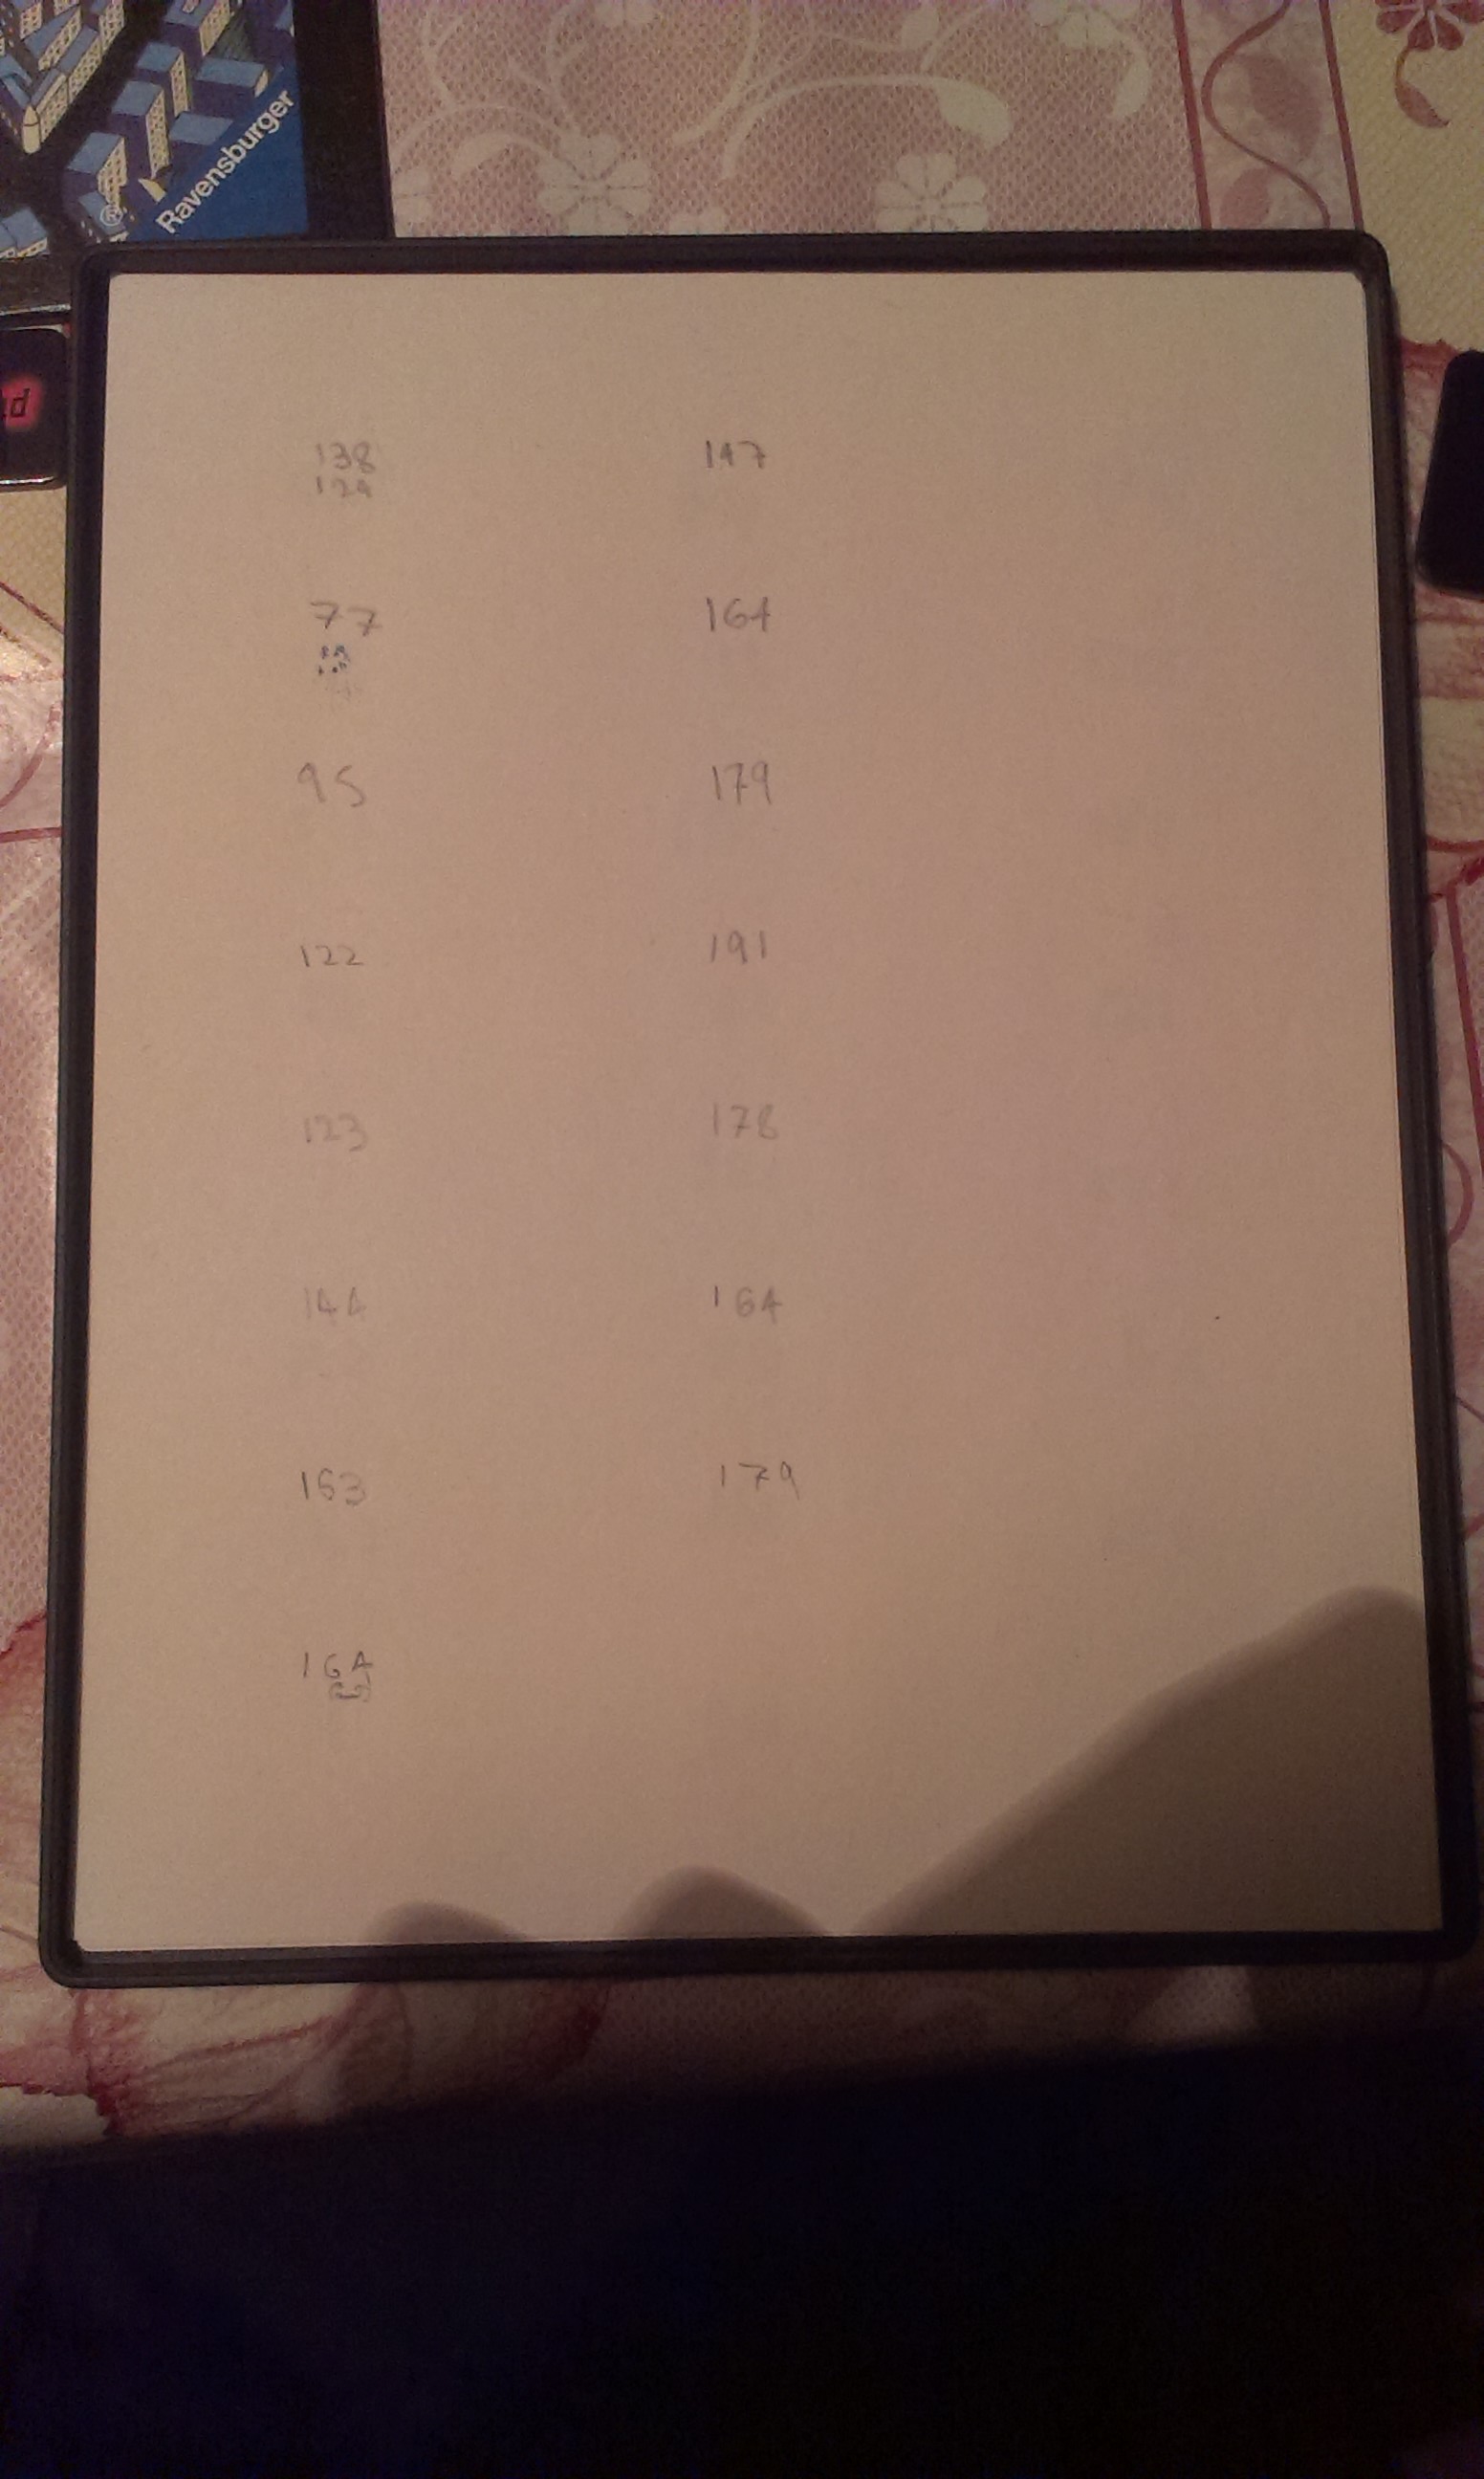 Ravensburger
®
138
124
77
95
122
123
144
163
164
147
164
179
191
178
164
179